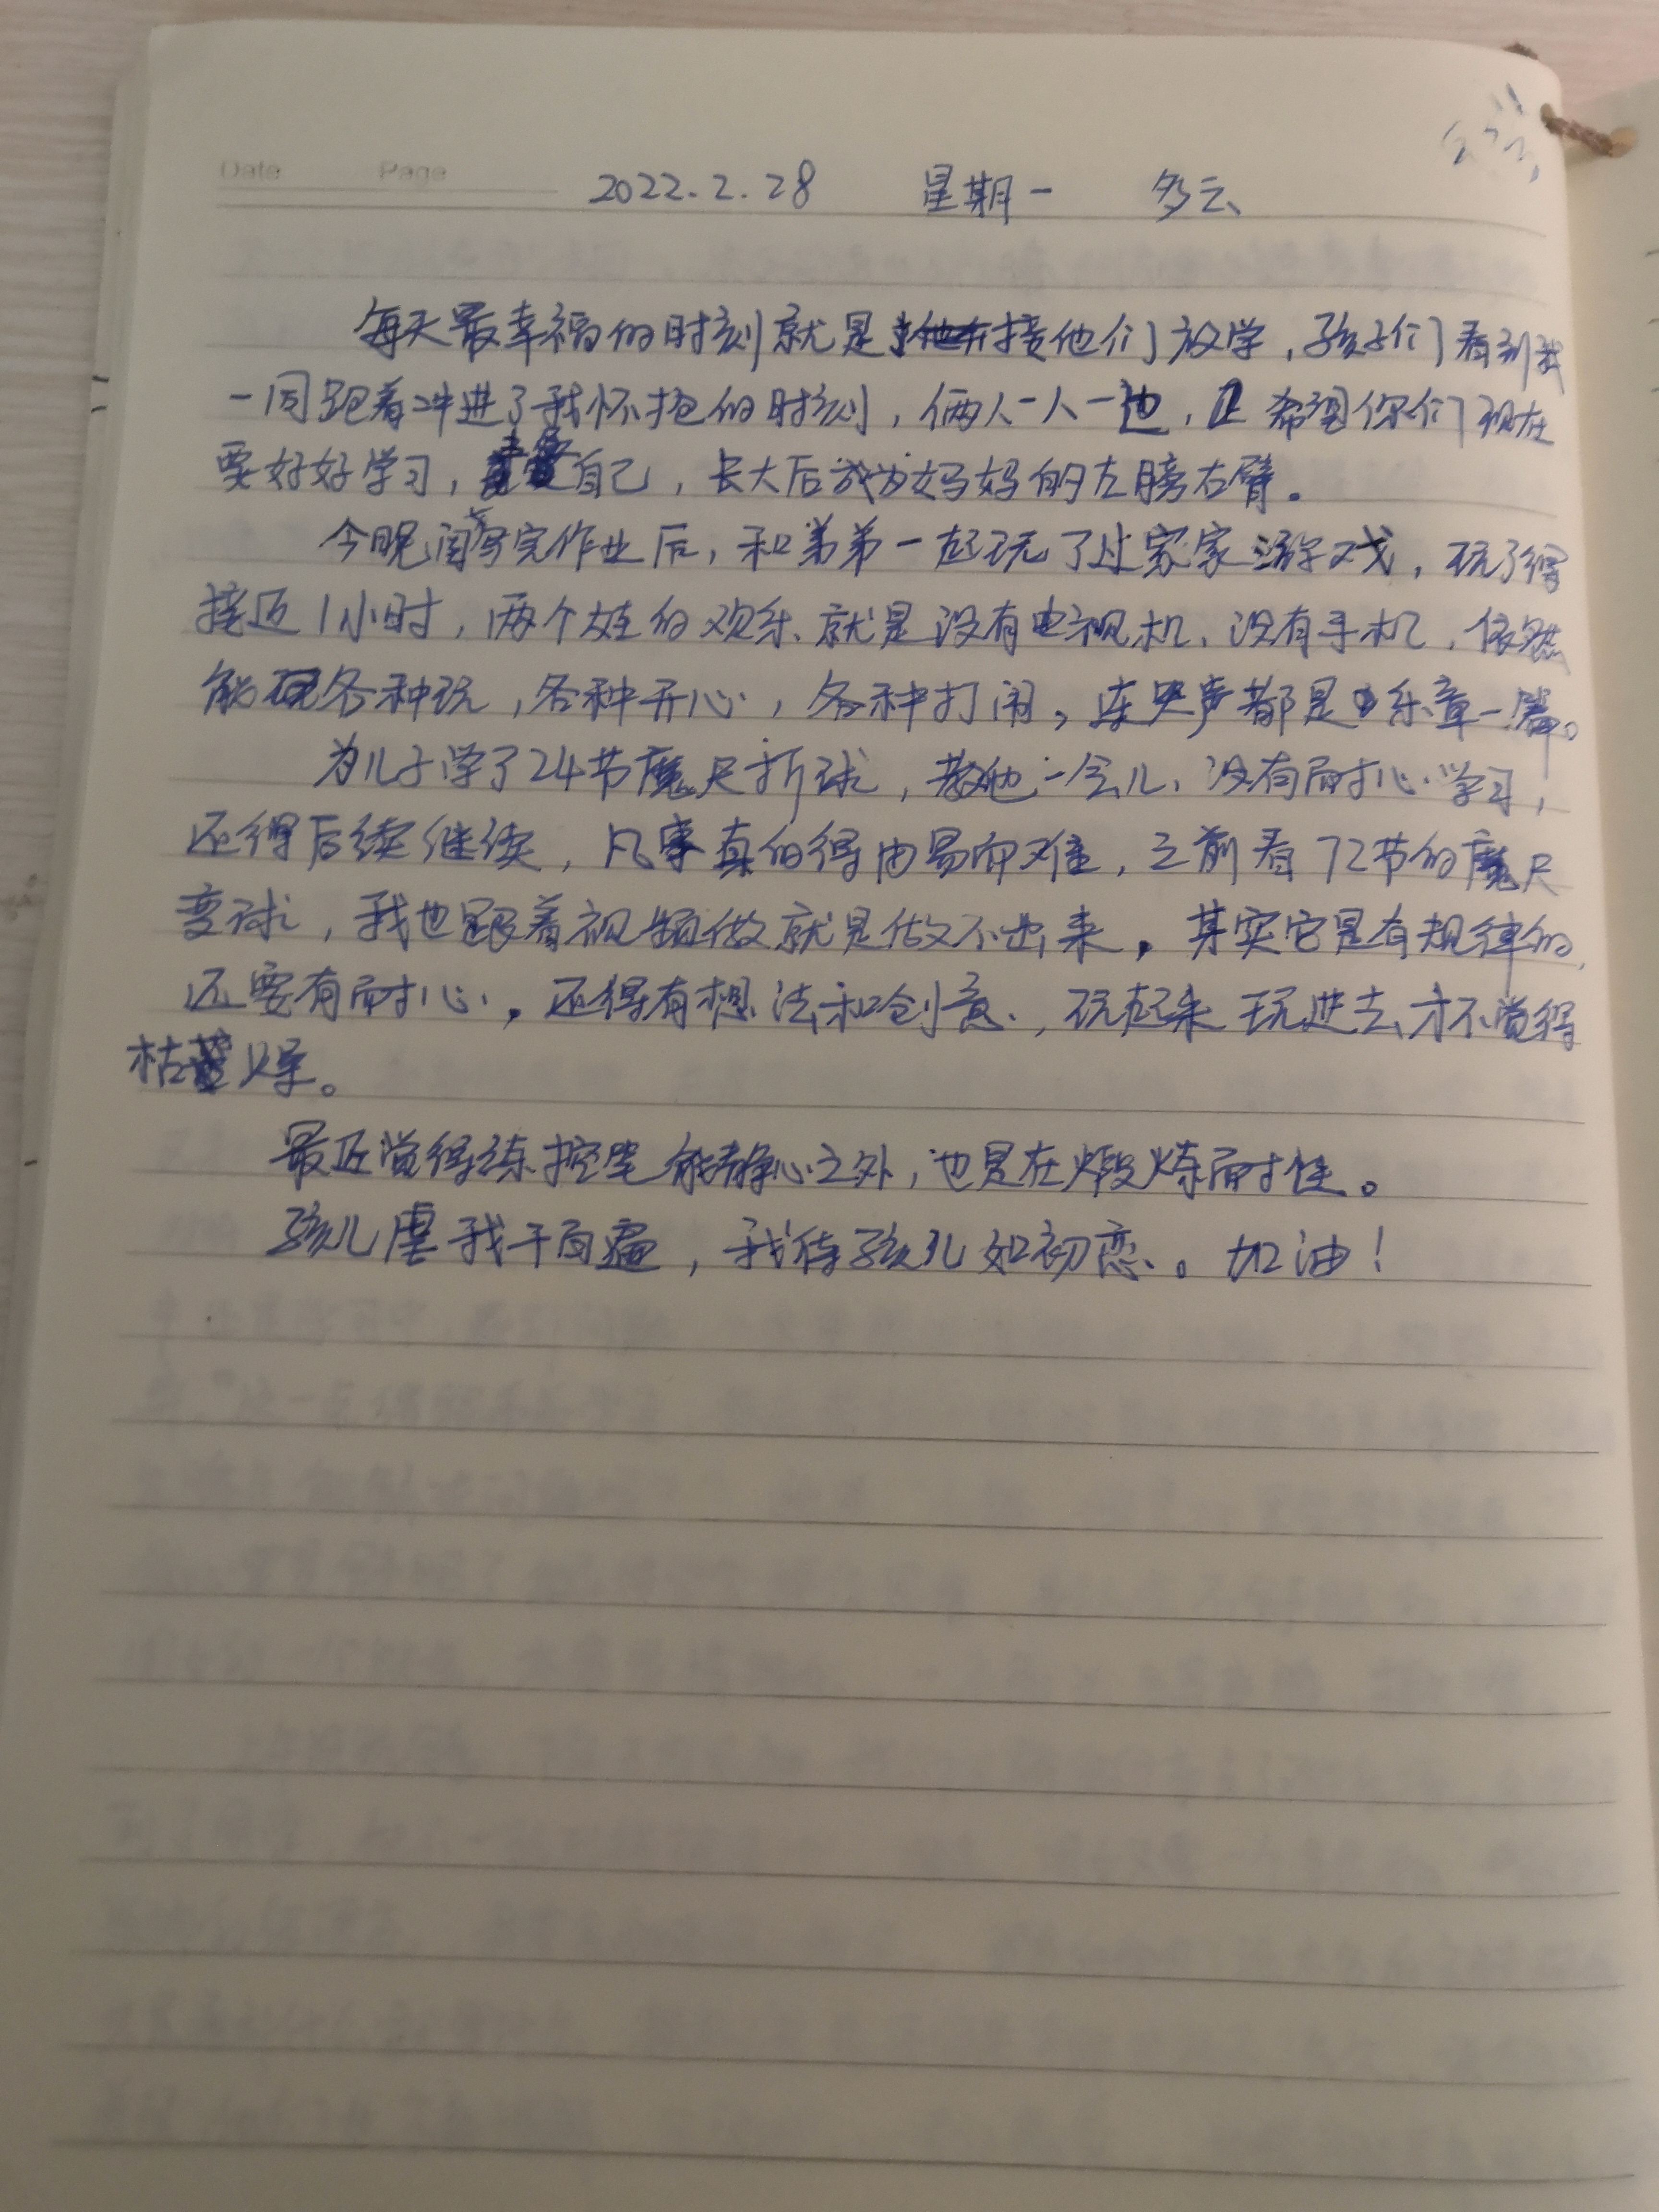 Date Page
2022.2.28 星期一 多云
每天最幸福的时刻就是接他们放学,孩子们看到我
一同跑着冲进了我怀抱的时刻,俩人一人一边,希望你们现在
要好好学习,自己,长大后成为妈妈的左膀右臂。
今晚闺女写完作业后,和弟弟一起玩了过家家游戏,玩了得
接近1小时,两个娃的欢乐、就是没有电视机、没有手机,依然
能各种玩,各种开心,各种打闹,连哭声都是乐章一篇。
为儿子学了24节魔尺折球,教他一会儿、没有耐心学习,
还得后续继续,凡事真的得由易而难,之前看72节的魔尺
变球,我也跟着视频做就是做不出来。其实它是有规律的,
还要有耐心。还得有想法和创意,玩起来玩进去才不觉得
枯燥。
最近觉得练控笔能静心之外,也是在煅炼耐性。
孩儿虐我千百遍,我待孩儿如初恋。加油!